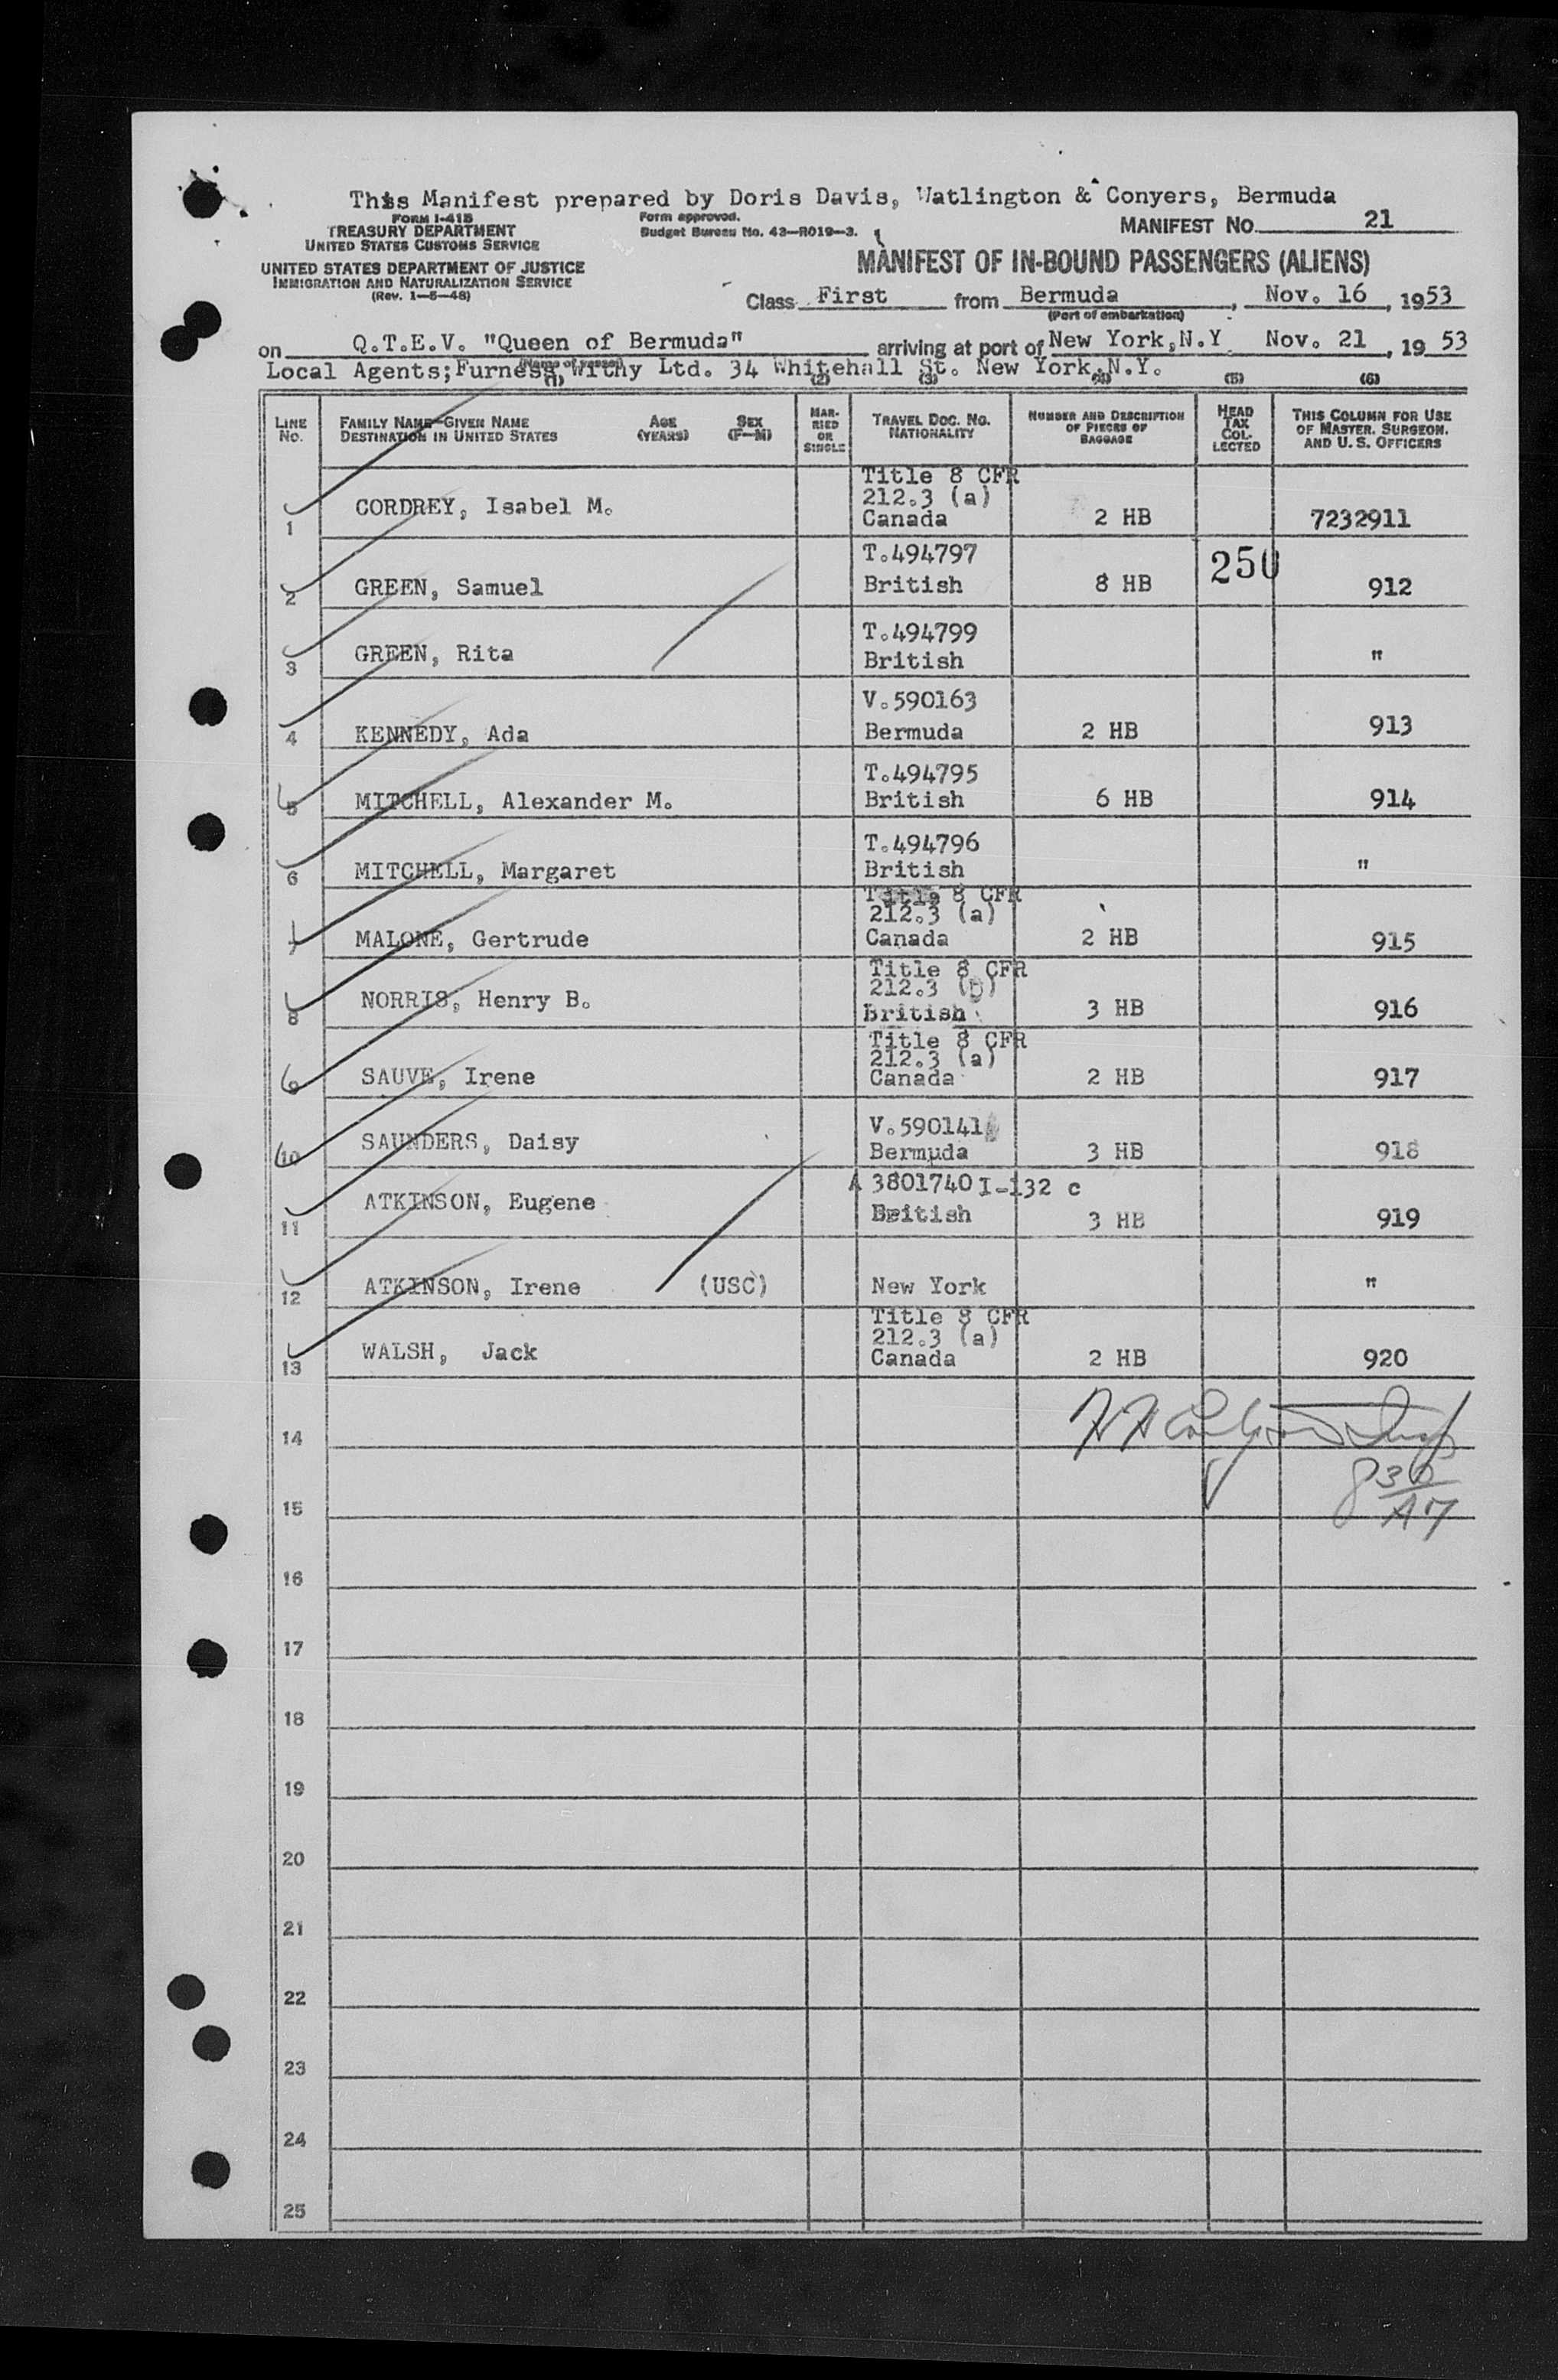 This Manifest prepared by Doris Davis, Watlington & Conyers, Bermuda
FORM I-415
TREASURY DEPARTMENT
UNITED STATES CUSTOMS SERVICE
UNITED STATES DEPARTMENT OF JUSTICE
IMMIGRATION AND NATURALIZATION SERVICE
(Rev. 1-5-48)
Form approved.
Budget Bureau No. 43-R019-3.
MANIFEST NO. 21
MANIFEST OF IN-BOUND PASSENGERS (ALIENS)
Class First from Bermuda, Nov. 16, 1953
(Port of embarkation)
on Q.T.E.V. "Queen of Bermuda" arriving at port of New York, N.Y Nov. 21, 19 53
(Name of vessel)
Local Agents; Furness Withy Ltd. 34 Whitehall St. New York, N.Y.
(1) (2) (3) (4) (5) (6)
LINE NO.
FAMILY NAME-GIVEN NAME AGE SEX
DESTINATION IN UNITED STATES (YEARS) (F-M)
MAR-
RIED
OR
SINGLE
TRAVEL DOC. NO.
NATIONALITY
NUMBER AND DESCRIPTION
OF PIECES OF
BAGGAGE
HEAD
TAX
COL-
LECTED
THIS COLUMN FOR USE
OF MASTER, SURGEON,
AND U. S. OFFICERS
Title 8 CFR
212.3 (a)
1 CORDREY, Isabel M. Canada 2 HB 7232911
T.494797
250
2 GREEN, Samuel British 8 HB 912
T.494799
3 GREEN, Rita British "
V.590163
4 KENNEDY, Ada Bermuda 2 HB 913
T.494795
5 MITCHELL, Alexander M. British 6 HB 914
T.494796
6 MITCHELL, Margaret British "
Title 8 CFR
212.3 (a)
7 MALONE, Gertrude Canada 2 HB 915
Title 8 CFR
212.3 (b)
8 NORRIS, Henry B. British 3 HB 916
Title 8 CFR
212.3 (a)
9 SAUVE, Irene Canada 2 HB 917
V.590141
10 SAUNDERS, Daisy Bermuda 3 HB 918
A 3801740 I-132 c
11 ATKINSON, Eugene British 3 HB 919
12 ATKINSON, Irene (USC) New York "
Title 8 CFR
212.3 (a)
13 WALSH, Jack Canada 2 HB 920
14
15
830
AM
16
17
18
19
20
21
22
23
24
25